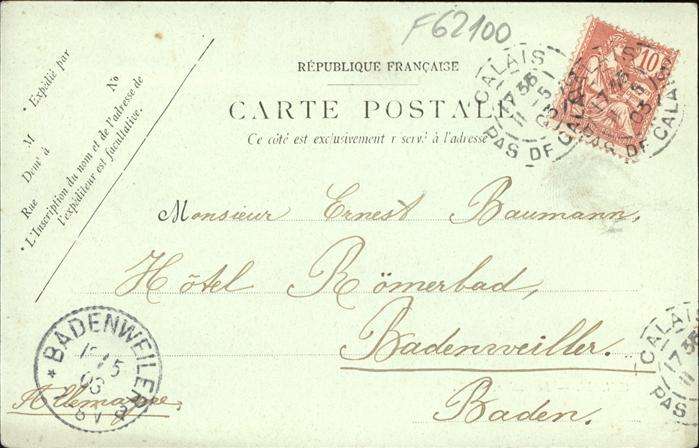 F62100
RÉPUBLIQUE FRANÇAISE
CARTE POSTALE
Ce côté est exclusivement réservé à l'adresse
* Expédié par
M
No
Dom' à
Rue
* L'Inscription du nom et de l'adresse de
l'expéditeur est facultative.
CALAIS
17 35
11 5
03
PAS DE CALAIS
10
CALAIS
17 35
11 5
03
PAS DE CALAIS
Monsieur Ernest Baumann,
Hôtel Römerbad,
Badenweiller.
Baden.
Allemagne,
* BADENWEILER
5
03
CALAIS
17 35
11
PAS